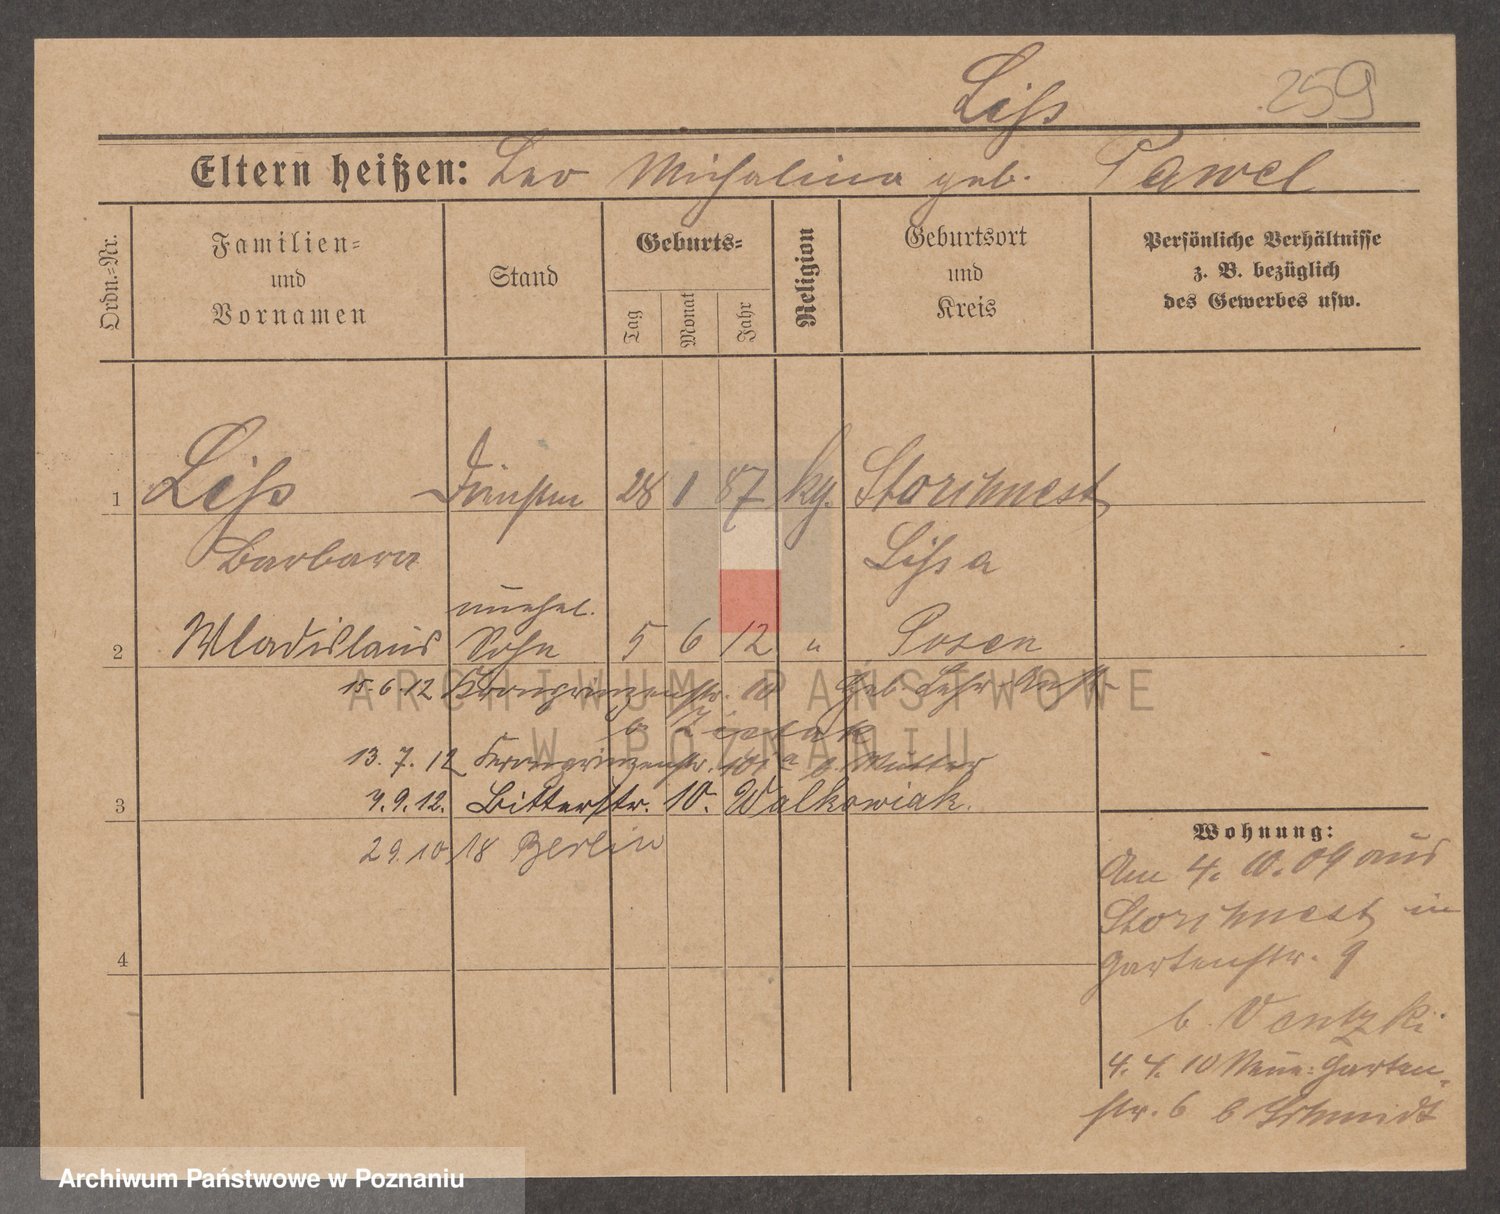 Liss 259
Eltern heißen: Leo Michalina geb. Pawel
Ordn.=Nr.
Familien=
und
Vornamen
Stand
Geburts=
Tag
Monat
Jahr
Religion
Geburtsort
und
Kreis
Persönliche Verhältnisse
z. B. bezüglich
des Gewerbes usw.
1 Liss 28 1 87 kg. Storchnest
Barbara Lissa
unehel.
2 Wladislaus Sohn 5 6 12 " Posen
15.6.12 Kronprinzenstr. Geb. Lehr Anst.
b
13. 7. 12 Kronprinzenstr. 101a b. Mutter
3 4.9.12. Bitterstr. 10. Walkowiak.
29.10 18 Berlin
4
Wohnung:
Am 4. 10. 09 aus
Storchnest in
Gartenstr. 9
b. Ventzki
4. 4. 10 Neue=Garten-
str. 6 b Schmidt
ARCHIWUM PAŃSTWOWE
W POZNANIU
Archiwum Państwowe w Poznaniu